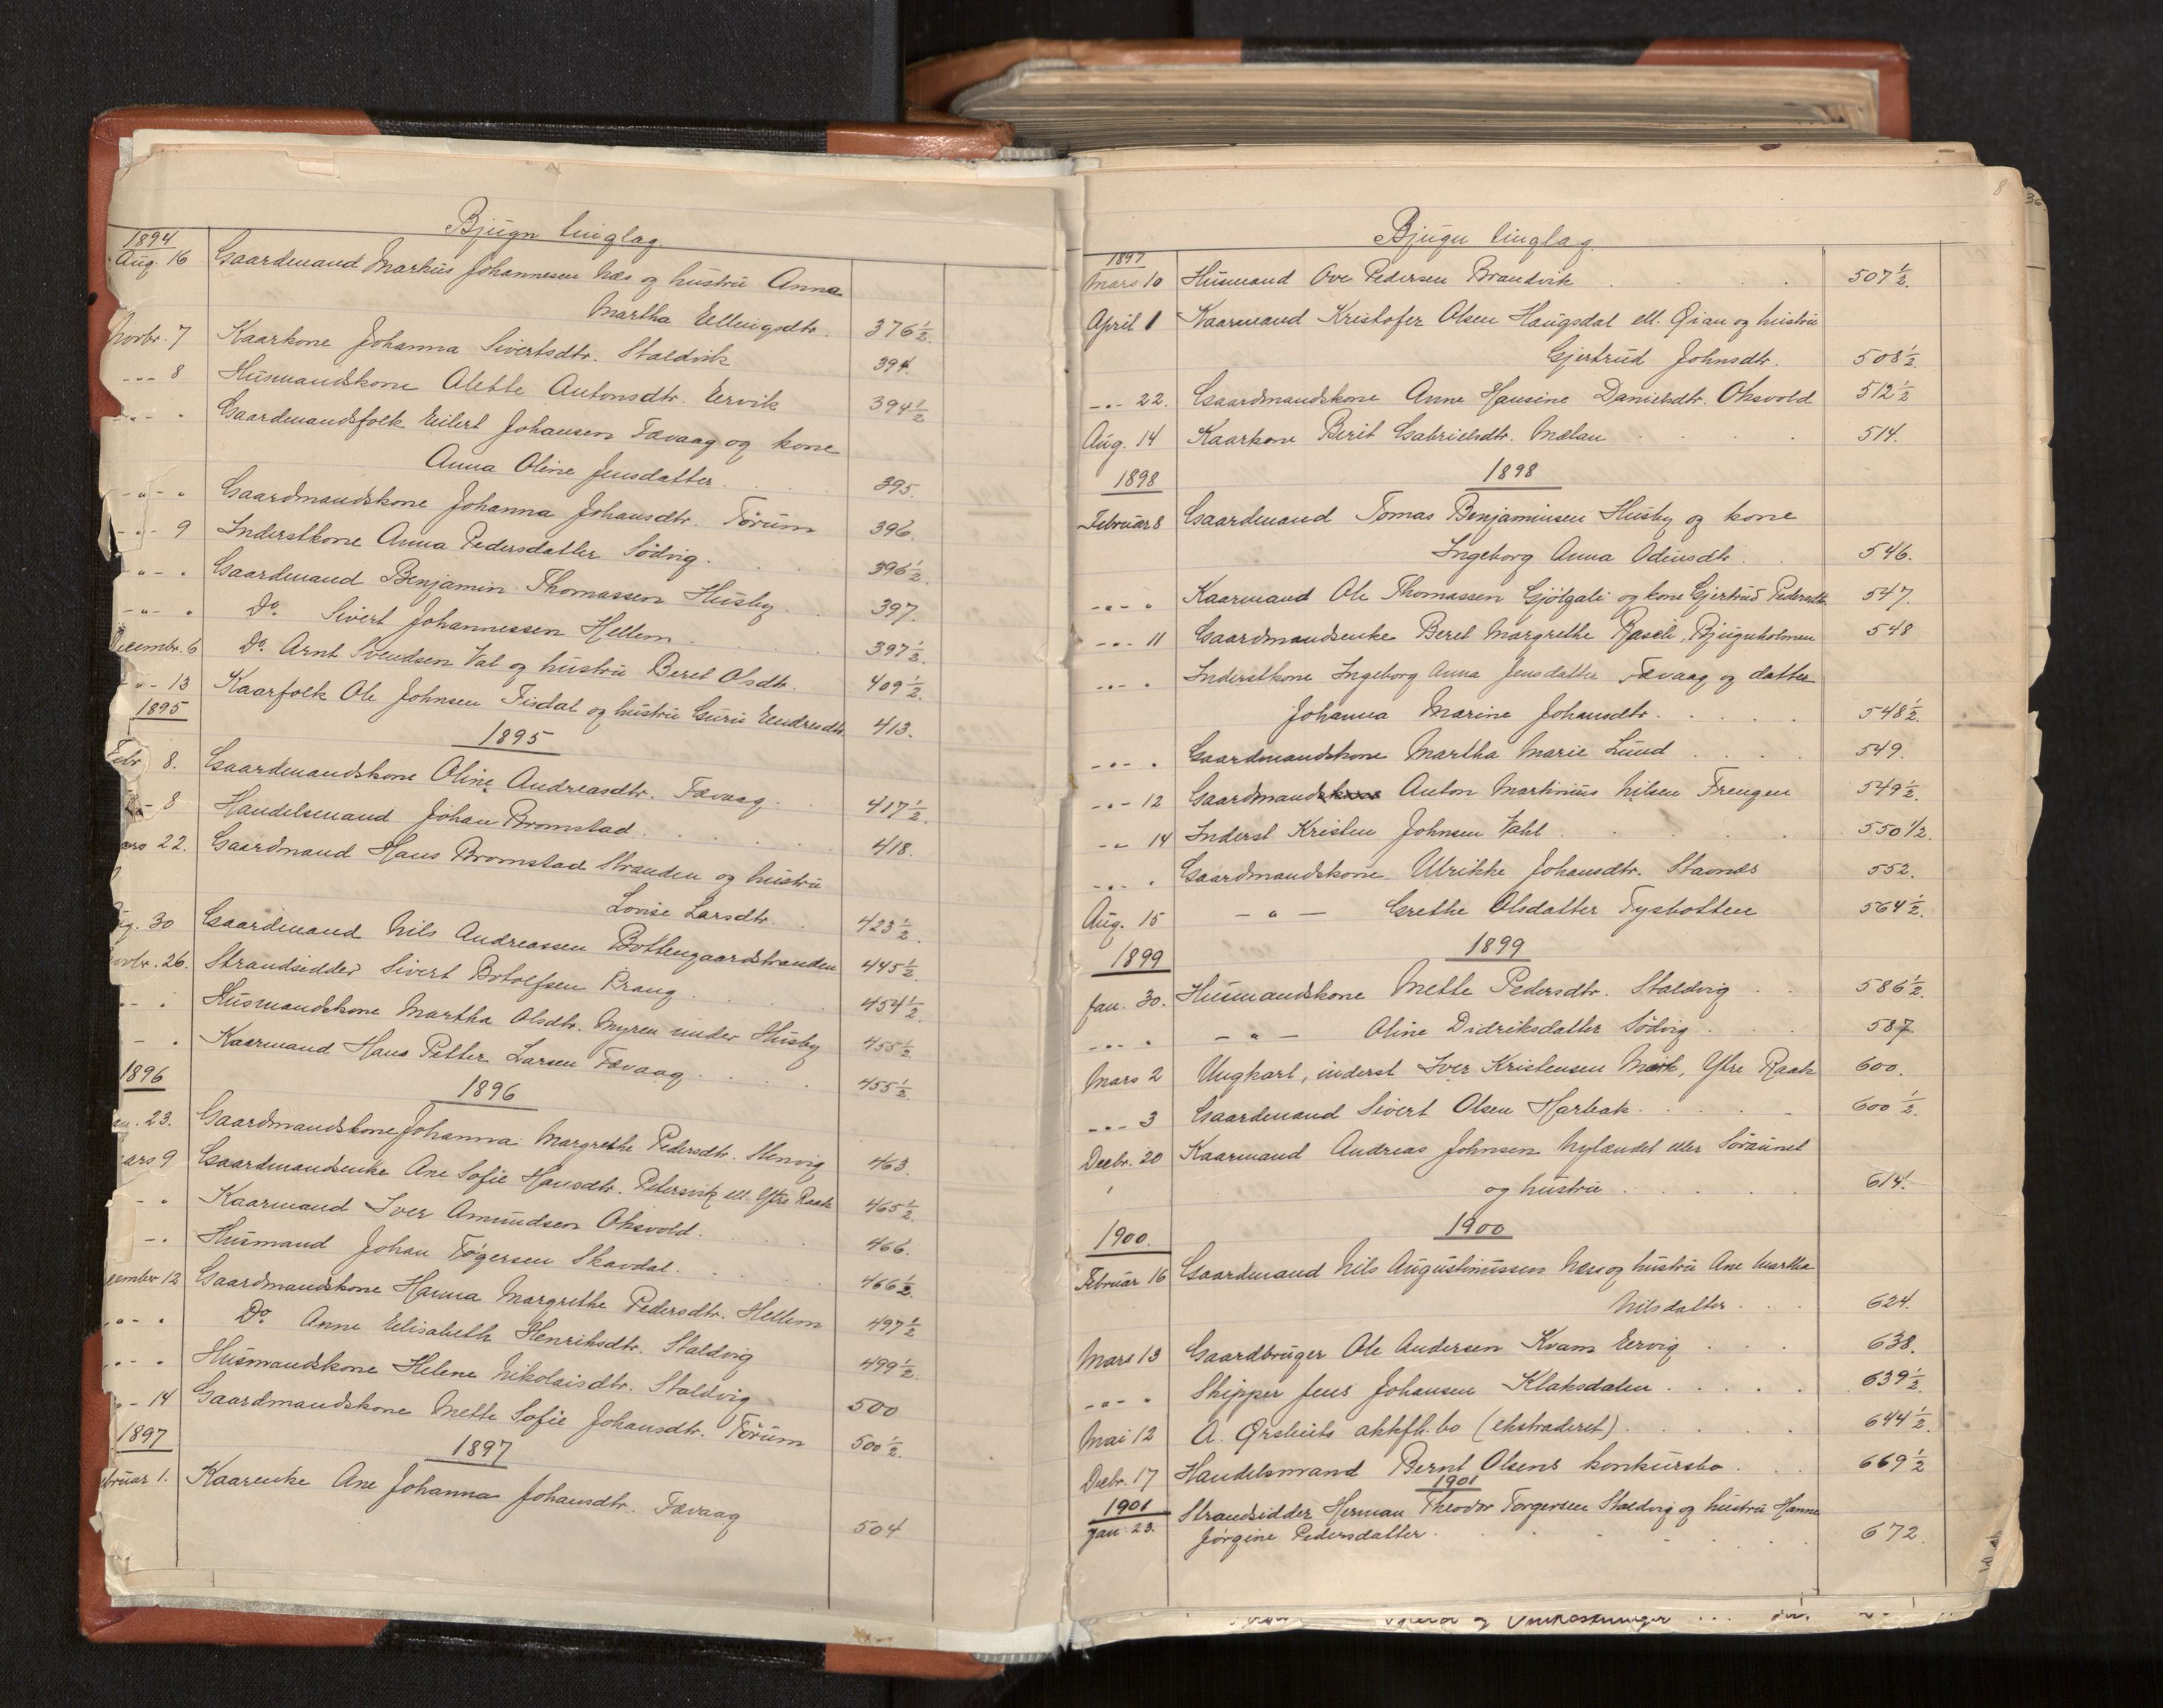 Bjugn tinglag.
1894
Aug. 16 Gaardmand Markus Johannesen Næs og hustru Anna
Martha Ellingsdtr. 376½.
Novbr. 7 Kaarkone Johanna Sivertsdtr. Staldvik 394.
-"- 8 Husmandskone Alette Antonsdtr. Ervik 394½
-"- . Gaardmandsfolk Eilert Johansen Tævaag og kone
Anna Oline Jensdatter. 395.
-"- " Gaardmandskone Johanna Johansdtr. Törum 396.
-"- 9 Inderstkone Anna Pedersdatter Södvig. 396½.
-"- . Gaardmand Benjamin Thomassen Husby. 397.
-"- " Do. Sivert Johannessen Hellem 397½.
Decembr. 6 Do. Arnt Svendsen Val og hustru Beret Olsdtr. 409½.
-"- 13 Kaarfolk Ole Johnsen Tisdal og hustru Guru Endresdtr. 413.
1895
1895
Febr. 8. Gaardmandskone Oline Andreasdtr. Tævaag. 417½.
-"- 8 Handelsmand Johan Bromstad. 418.
Mars 22. Gaardmand Hans Bromstad Stranden og hustru
Lovise Larsdtr. 423½.
Aug. 30 Gaardmand Nils Andreassen Bottengaardstranden 445½.
Novbr. 26. Strandsidder Sivert Botolfsen Prang. 454½.
-"- . Husmandskone Martha Olsdtr. Myren under Husby 455½.
- . Kaarmand Hans Petter Larsen Tævaag. 455½.
1896
1896
Jan. 23. Gaardmandskone Johanna Margrethe Pedersdtr. Stenvig 463.
Mars 9 Gaardmandsenke Ane Sofie Hansdtr. Petersvik ell. Ytre Raak 465½.
- " Kaarmand Iver Amundsen Oksvold. 466.
-. Husmand Johan Tøgersen Skavdal. 466½.
December 12 Gaardmandskone Hanna Margrethe Pedersdtr. Hellem 497½
-"- . Do. Anne Elisabeth Henriksdtr. Staldvig 499½.
-"- . Husmandskone Helene Nikolaisdtr. Staldvig 500
-"- 14 Gaardmandskone Mette Sofie Johansdtr. Törum 500½.
1897
1897
Februar 1. Kaarenke Ane Johanna Johansdtr. Tævaag 504
8
Bjugn tinglag.
1897
Mars 10 Husmand Ove Pedersen Brandvik 507½.
April 1 Kaarmand Kristofer Olsen Haugsdal ell. Øian og hustru
Gjertrud Johnsdtr. 508½.
-"- 22. Gaardmandskone Anne Hansine Danielsdtr. Oksvold 512½
Aug. 14 Kaarkone Berit Gabrielsdtr. Mælan 514.
1898
1898
Februar 8 Gaardmand Tomas Benjaminsen Husby og kone
Ingeborg Anna Odinsdtr. 546.
-"- " Kaarmand Ole Thomassen Gjölgali og kone Gjertrud Pedersdtr. 547.
-"- 11 Gaardmandsenke Beret Margrethe Rasch, Bjugnholmen 548
-"- . Inderstkone Ingeborg Anna Jensdatter Tævaag og datter
Johanna Marine Johansdtr. 548½.
-"- . Gaardmandskone Martha Marie Lund 549.
-"- 12 Gaardmandskone Anton Martinius Nilsen Trengen 549½.
-"- 14 Inderst Kristen Johnsen Vahl 550½.
-"- . Gaardmandskone Ulrikke Johansdtr. Stavnes 552.
Aug. 15 -"- Grethe Olsdatter Tysbotten 564½.
1899
1899
Jan. 30. Husmandskone Mette Pedersdtr. Staldvig 586½.
-"- . -"- Oline Didriksdatter Södvig 587
Mars 2 Ungkarl, inderst Iver Kristensen Mork, Ytre Raak 600.
-"- 3 Gaardmand Sivert Olsen Harbak. 600½.
Decbr. 20 Kaarmand Andreas Johnsen Nylandet eller Søraunet
og hustru 614.
1900.
1900
Februar 16 Gaardmand Nils Augustinussen Næs og hustru Ane Martha
Nilsdatter 624.
Mars 13 Gaardbruger Ole Andersen Kvam Ervig 638.
-"- . Skipper Jens Johansen Klaksdalen 639½.
Mai 12 A. Ørsleits akkfh. bo (ekstraderet) 644½.
Decbr. 17 Handelsmand Bernt Olsens konkursbo 669½
1901
1901
Jan. 23. Strandsidder Herman Theodor Torgersen Staldvig og hustru Hanne
Jörgine Pedersdatter 672.